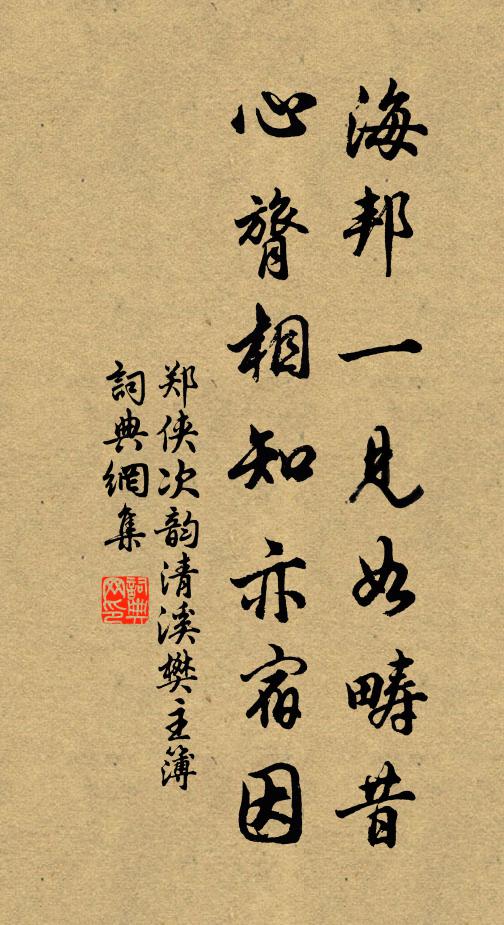 海邦一見如畴昔
心膂相知亦宿因
郑侠次韵清溪樊主簿
詞典網集
詞典網印